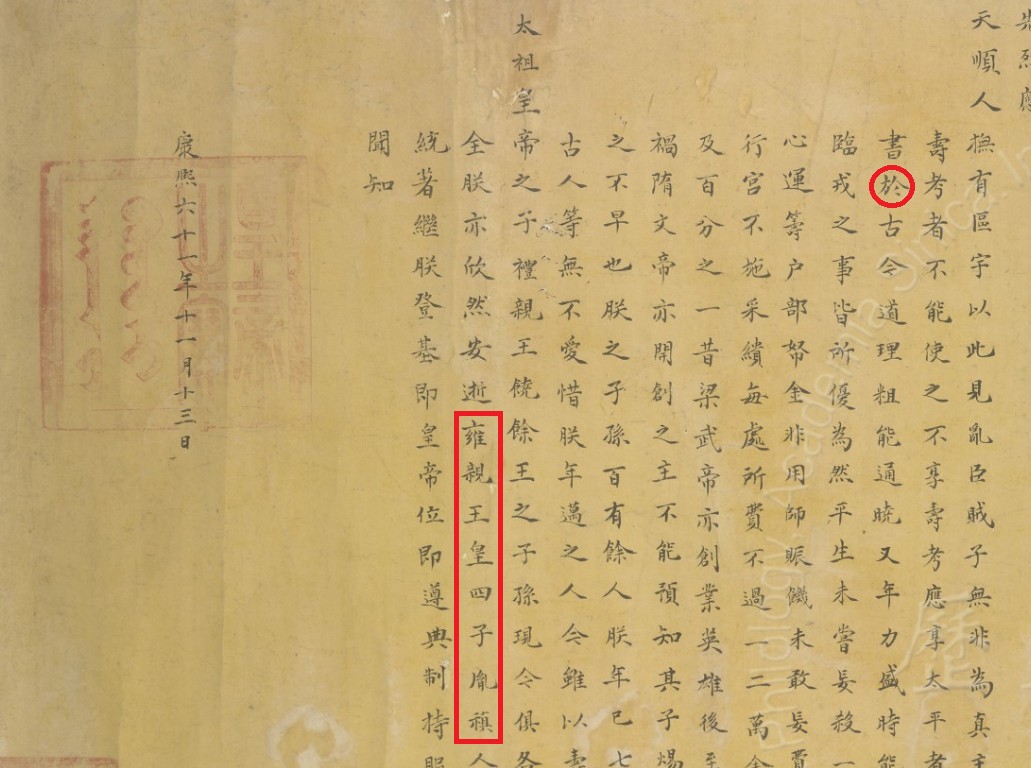 先烈應
天順人撫有區宇以此見亂臣賊子無非為真主
壽考者不能使之不享壽考應享太平者
書於古今道理粗能通曉又年力盛時能
臨戎之事皆所優為然平生未嘗妄殺一
心運籌户部帑金非用師賑饑未敢妄費
行宮不施采繢每處所費不過一二萬金
及百分之一昔梁武帝亦創業英雄後至
禍隋文帝亦開創之主不能預知其子煬
之不早也朕之子孫百有餘人朕年已七
古人等無不愛惜朕年邁之人今雖以壽
太祖皇帝之子禮親王饒餘王之子孫現今俱各
全朕亦欣然安逝雍親王皇四子胤禛人
統著繼朕登基即皇帝位即遵典制持服
聞知
康熙六十一年十一月十三日